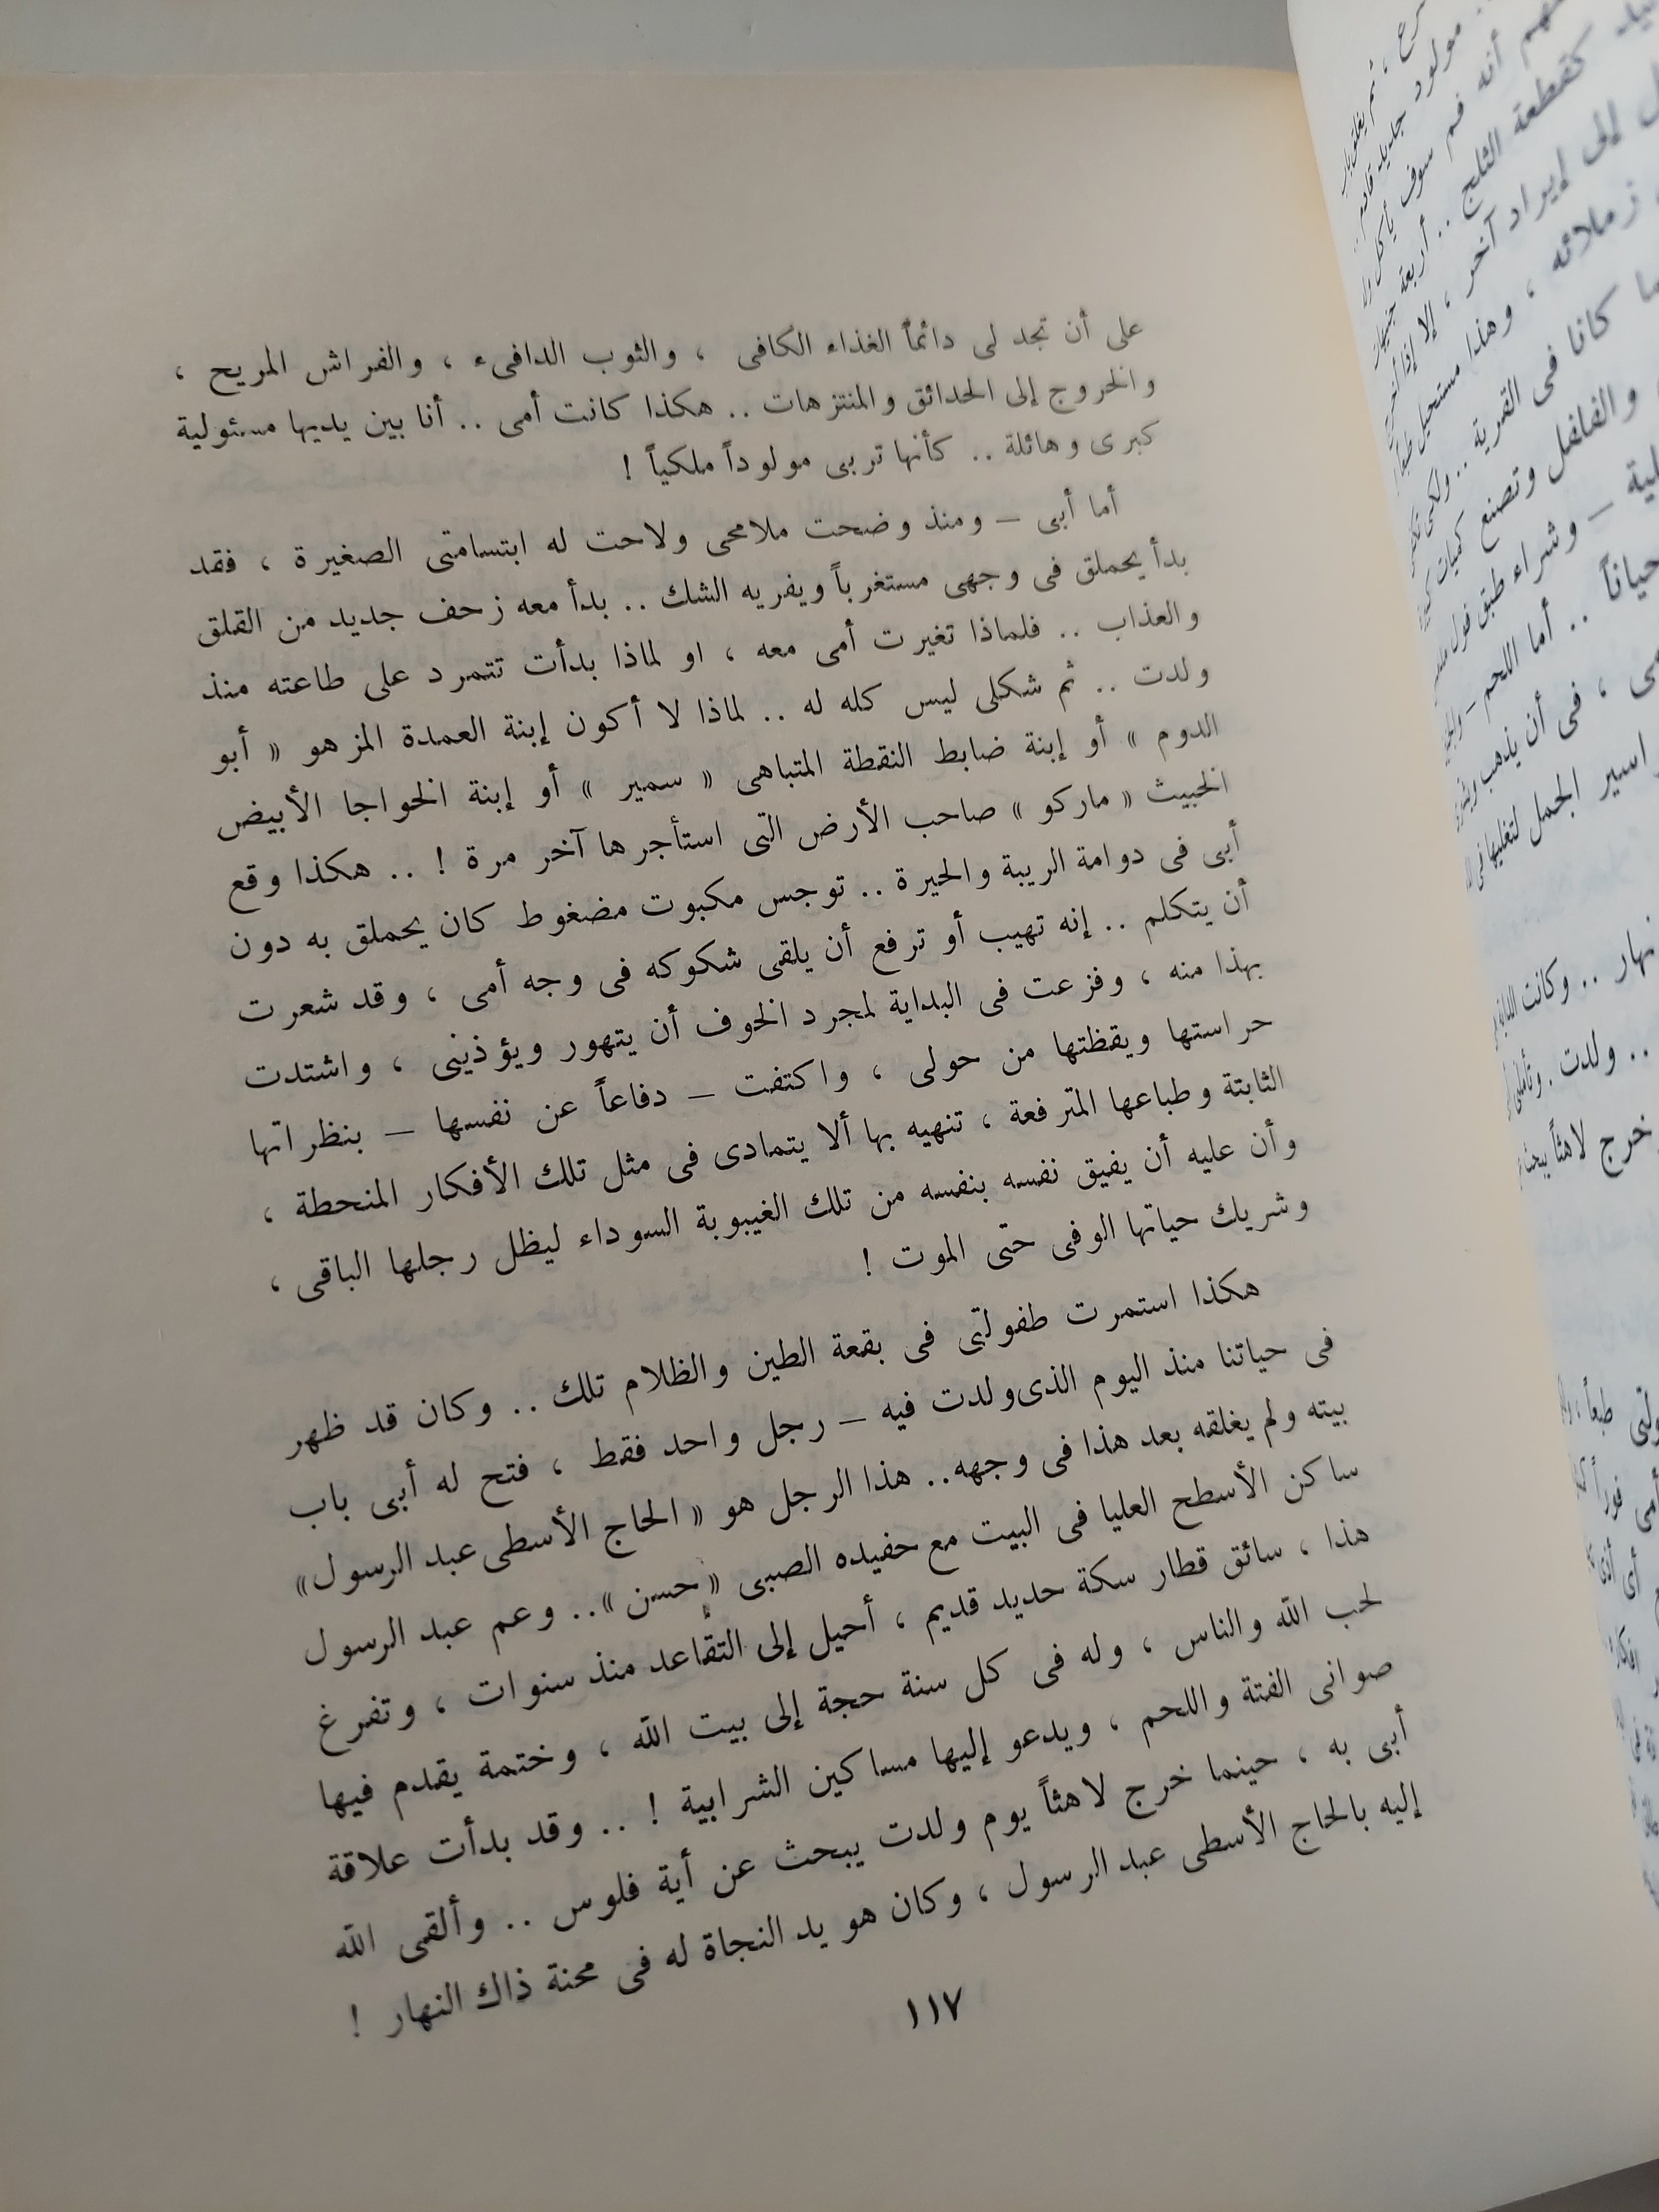 على أن تجد لى دائماً الغذاء الكافى ، والثوب الدافىء ، والفراش المريح ،
والخروج إلى الحدائق والمنتزهات .. هكذا كانت أمى .. أنا بين يديها مسئولية
كبرى وهائلة .. كأنها تربى مولوداً ملكياً !
أما أبى – ومنذ وضحت ملامحى ولاحت له ابتسامتى الصغيرة ، فقد
بدأ يحملق فى وجهى مستغرباً ويفريه الشك .. بدأ معه زحف جديد من القلق
والعذاب .. فلماذا تغيرت أمى معه ، او لماذا بدأت تتمرد على طاعته منذ
ولدت .. ثم شكلى ليس كله له .. لماذا لا أكون إبنة العمدة المزهو « أبو
الدوم » أو إبنة ضابط النقطة المتباهى « سمير » أو إبنة الخواجا الأبيض
الخبيث « ماركو » صاحب الأرض التى استأجرها آخر مرة ! .. هكذا وقع
أبى فى دوامة الريبة والحيرة .. توجس مكبوت مضغوط كان يحملق به دون
أن يتكلم .. إنه تهيب أو ترفع أن يلقى شكوكه فى وجه أمى ، وقد شعرت
بهذا منه ، وفزعت فى البداية لمجرد الخوف أن يتهور ويؤذينى ، واشتدت
حراستها ويقظتها من حولى ، واكتفت – دفاعاً عن نفسها – بنظراتها
الثابتة وطباعها المترفعة ، تنهيه بها ألا يتمادى فى مثل تلك الأفكار المنحطة ،
وأن عليه أن يفيق نفسه بنفسه من تلك الغيبوبة السوداء ليظل رجلها الباقى ،
وشريك حياتها الوفى حتى الموت !
هكذا استمرت طفولتى فى بقعة الطين والظلام تلك .. وكان قد ظهر
فى حياتنا منذ اليوم الذى ولدت فيه – رجل واحد فقط ، فتح له أبى باب
بيته ولم يغلقه بعد هذا فى وجهه .. هذا الرجل هو « الحاج الأسطى عبد الرسول »
ساكن الأسطح العليا فى البيت مع حفيده الصبى « حسن » .. وعم عبد الرسول
هذا ، سائق قطار سكة حديد قديم ، أحيل إلى التقاعد منذ سنوات ، وتفرغ
لحب الله والناس ، وله فى كل سنة حجة إلى بيت الله ، وختمة يقدم فيها
صوانى الفتة واللحم ، ويدعو إليها مساكين الشرابية ! .. وقد بدأت علاقة
أبى به ، حينما خرج لاهثاً يوم ولدت يبحث عن أية فلوس .. وألقى الله
إليه بالحاج الأسطى عبد الرسول ، وكان هو يد النجاة له فى محنة ذاك النهار !
١١٧